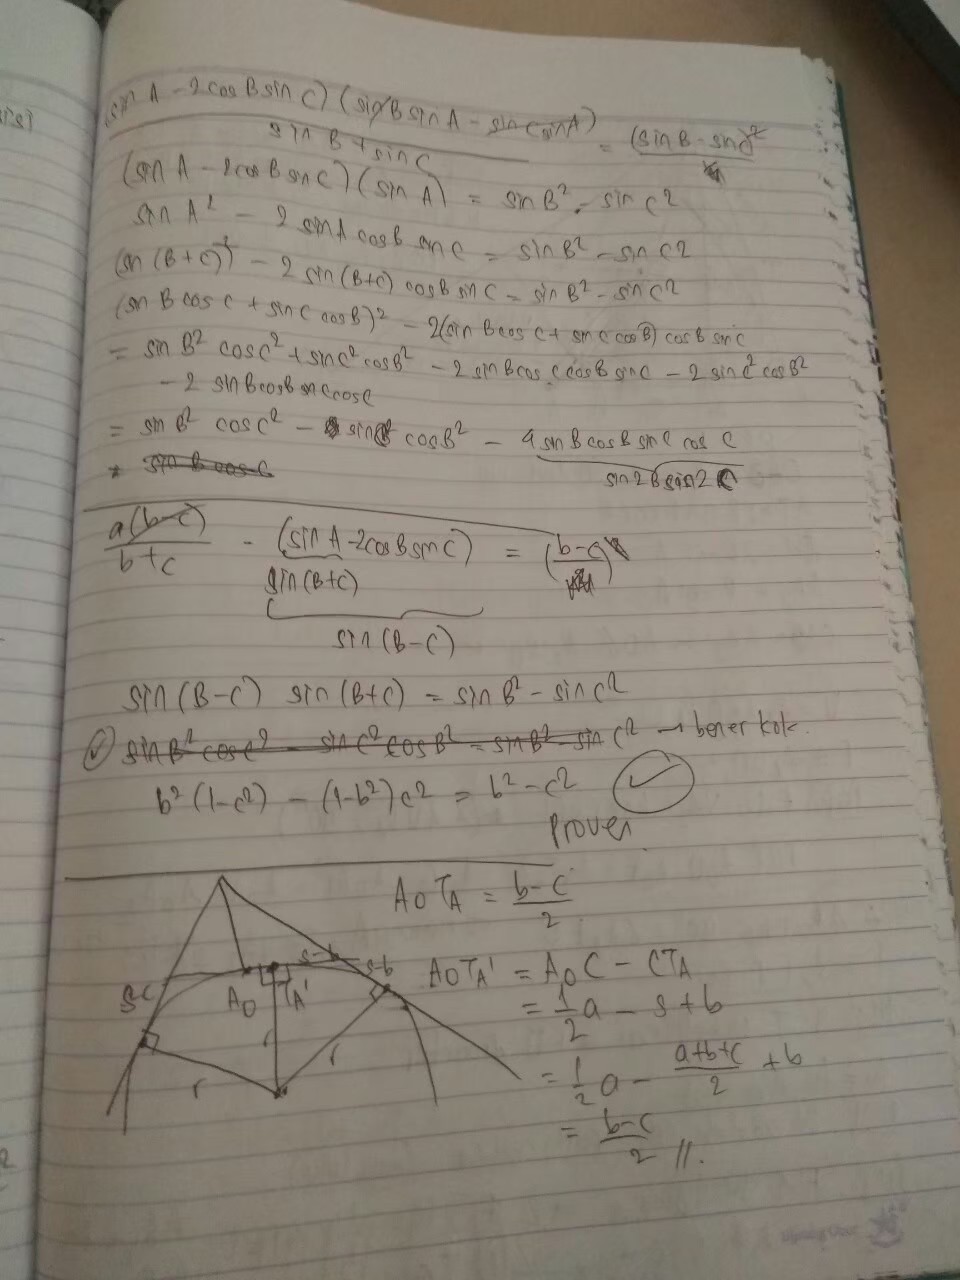 (sin A - 2 cos B sin C) (sin B sin A - sin C sin A) = (sin B - sin C)²
sin B + sin C
(sin A - 2 cos B sin C) (sin A) = sin B² - sin C²
sin A² - 2 sin A cos B sin C = sin B² - sin C²
(sin (B+C))² - 2 sin (B+C) cos B sin C = sin B² - sin C²
(sin B cos C + sin C cos B)² - 2(sin B cos C + sin C cos B) cos B sin C
= sin B² cos C² + sin C² cos B² - 2 sin B cos C cos B sin C - 2 sin C² cos B²
- 2 sin B cos B sin C cos C
= sin B² cos C² - sin C² cos B² - 4 sin B cos B sin C cos C
sin B cos C
sin 2B sin 2C
a(b-c)/b+c - (sin A - 2 cos B sin C) = (b-c)
sin (B+C)
sin (B-C)
sin (B-C) sin (B+C) = sin B² - sin C²
sin B² cos C² - sin C² cos B² = sin B² - sin C² → bener kok.
b² (1-c²) - (1-b²) c² = b² - c²
Proven.
A₀T_A = b-c/2
s-b s-b
A₀T_A' = A₀C - CT_A
s-c A₀ T_A'
= 1/2 a - s + b
r r
= 1/2 a - a+b+c/2 + b
r
= b-c/2 //.